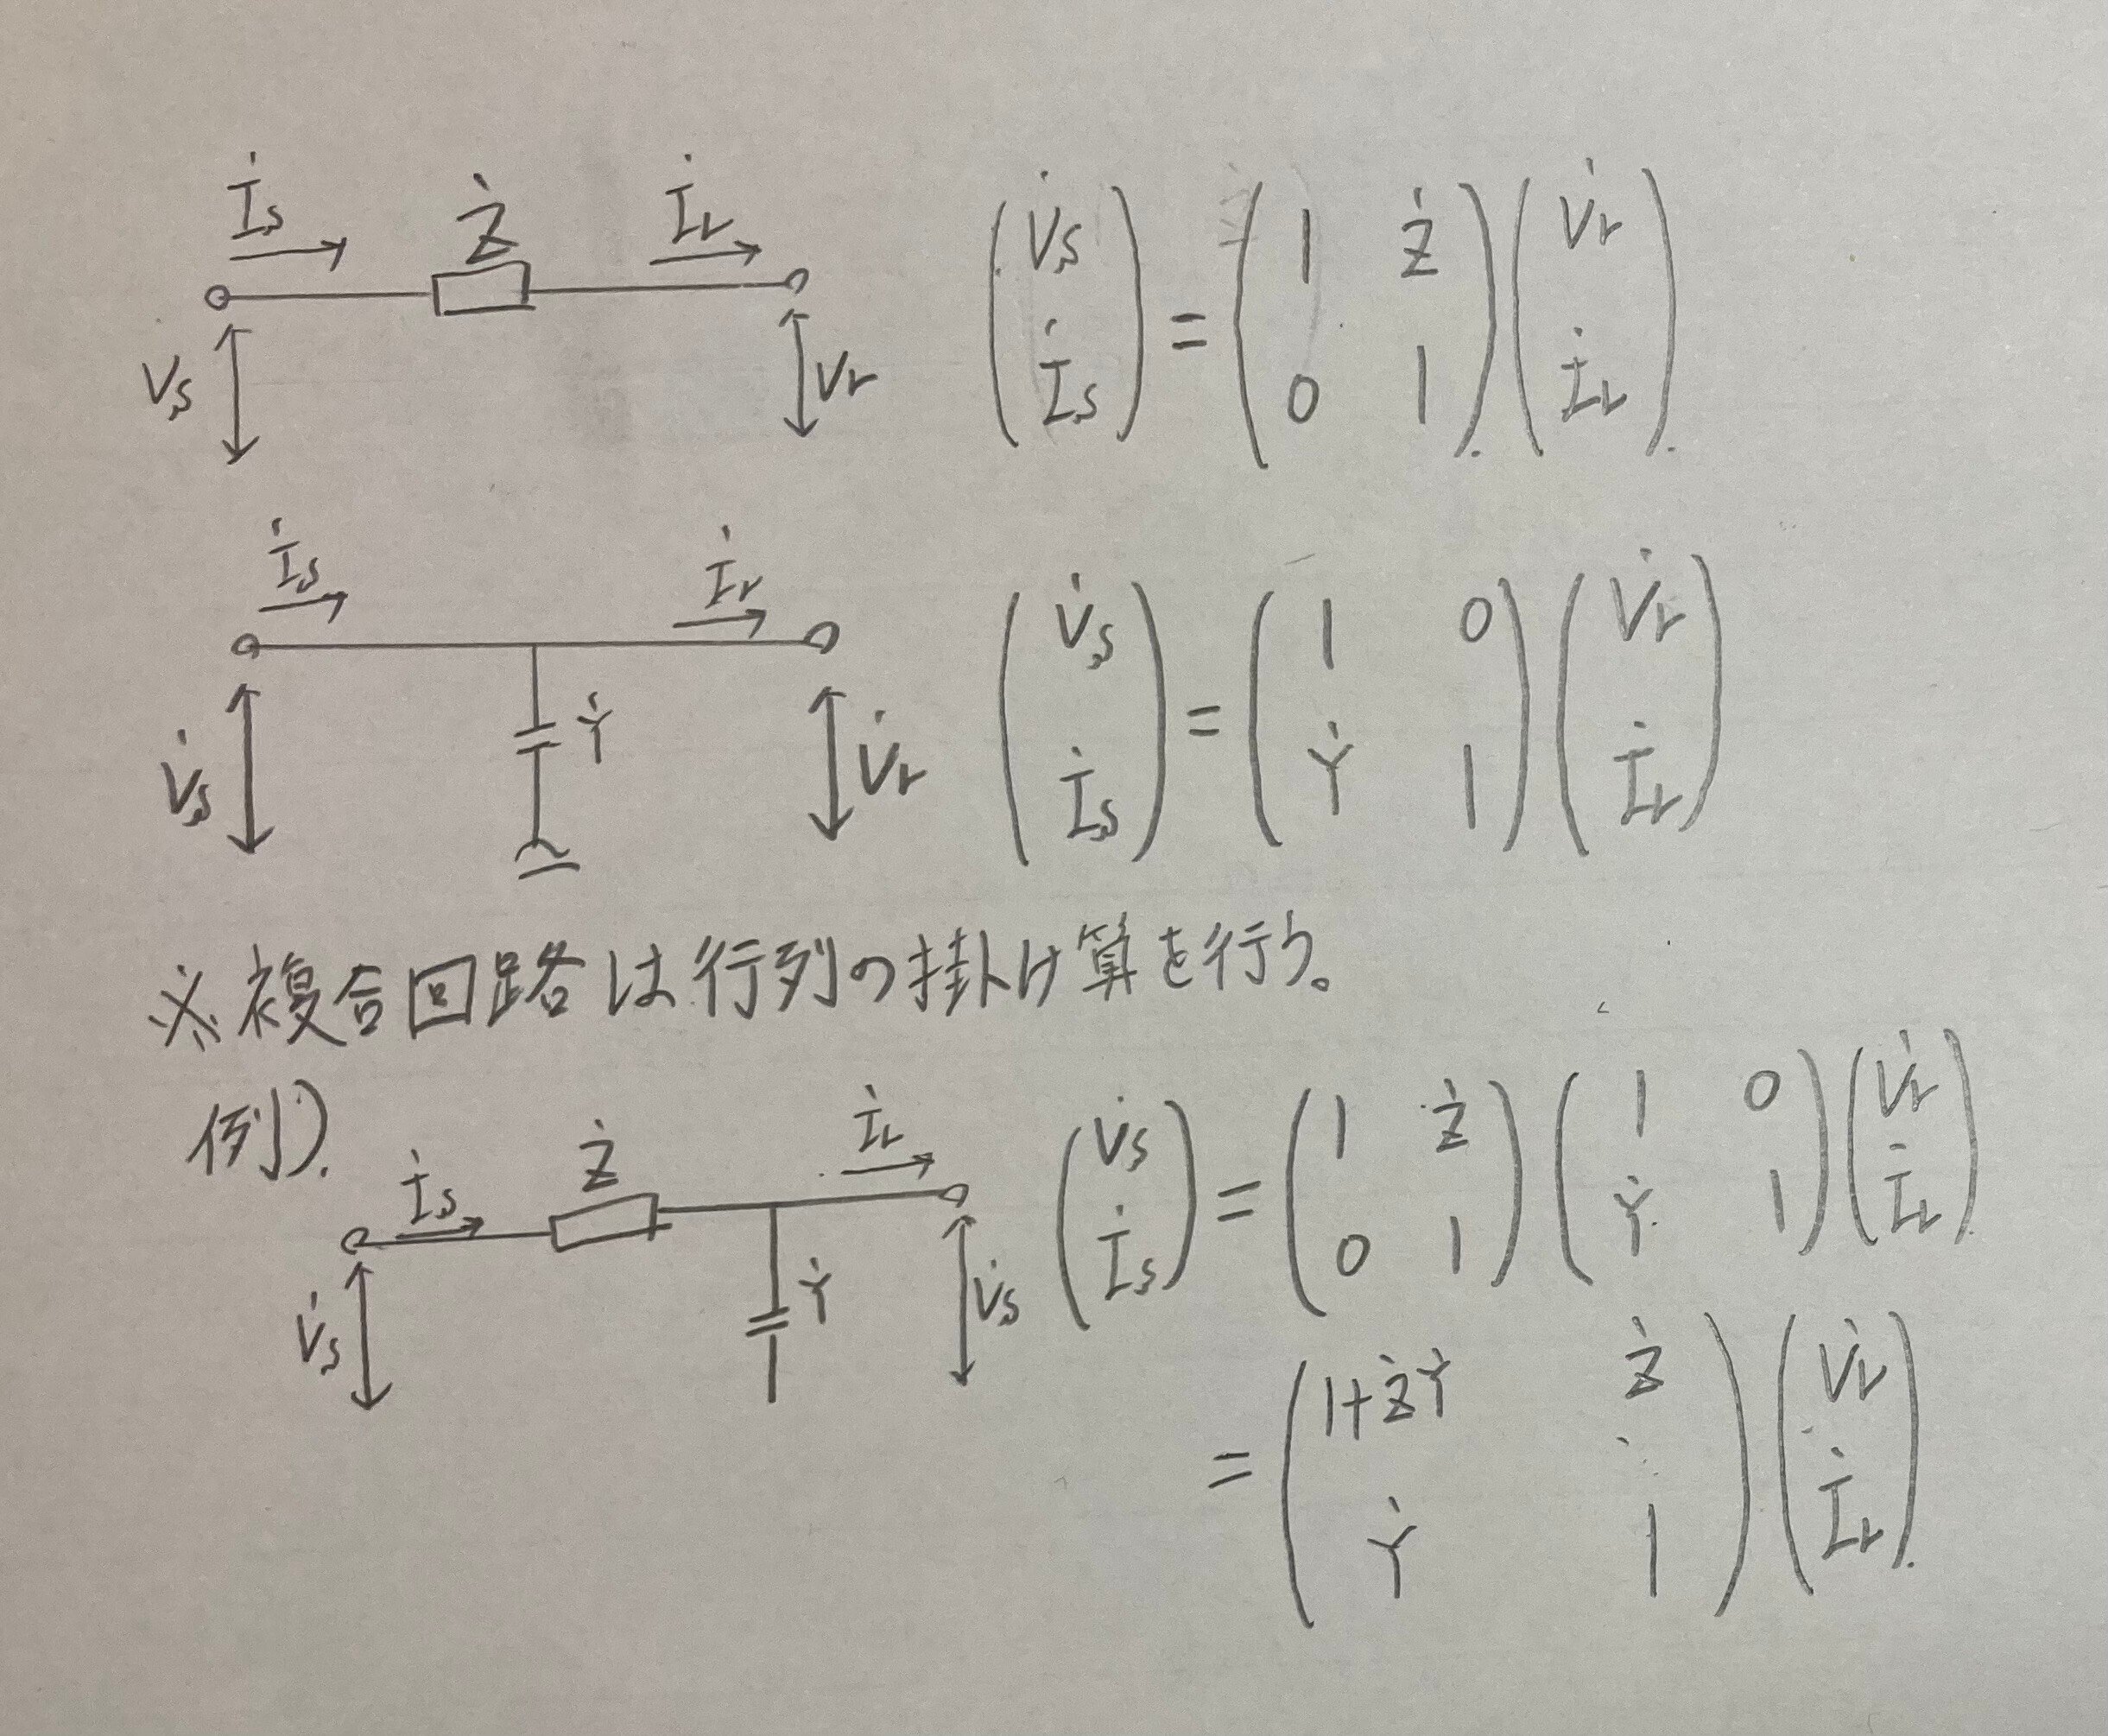 İs Ż İr
Vs Vr
(V̇s İs) = (1 Ż 0 1) (V̇r İr)
İs İr
V̇s Ẏ V̇r
(V̇s İs) = (1 0 Ẏ 1) (V̇r İr)
※複合回路は行列の掛け算を行う。
例).
İs Ż İr
V̇s Ẏ V̇s
(V̇s İs) = (1 Ż 0 1) (1 0 Ẏ 1) (V̇r İr)
= (1+ŻẎ Ż Ẏ 1) (V̇r İr)